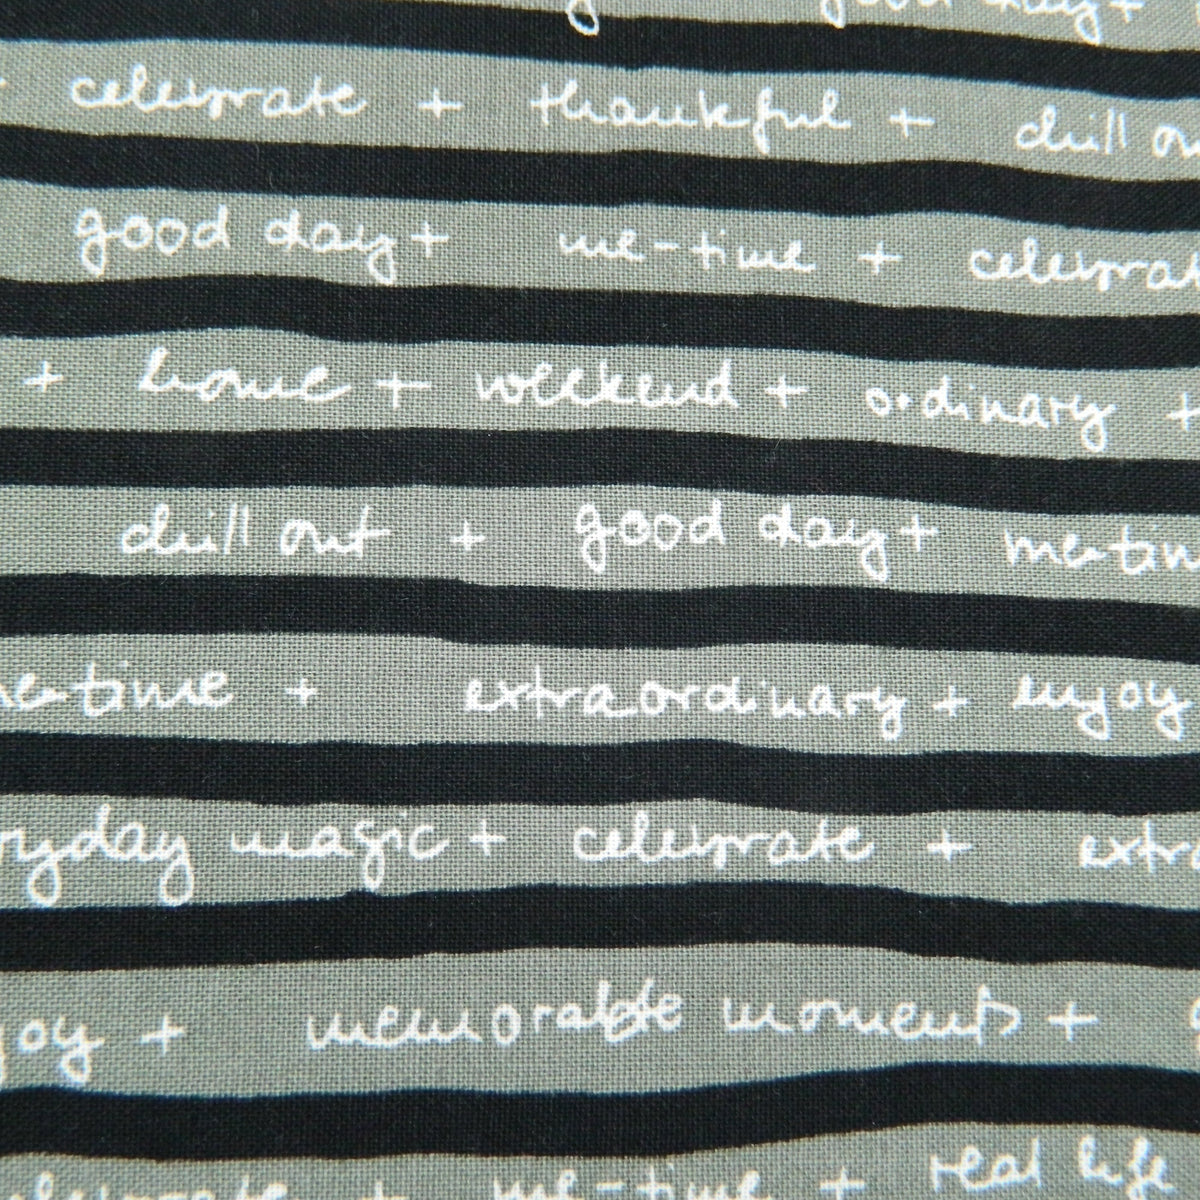 good day +
+ celebrate + thankful + chill ou
good day + me-time + celebrat
+ home + weekend + ordinary +
chill out + good day + me-tim
me-time + extraordinary + enjoy
ryday magic + celebrate + extra
joy + memorable moments +
celebrate + me-time + real life